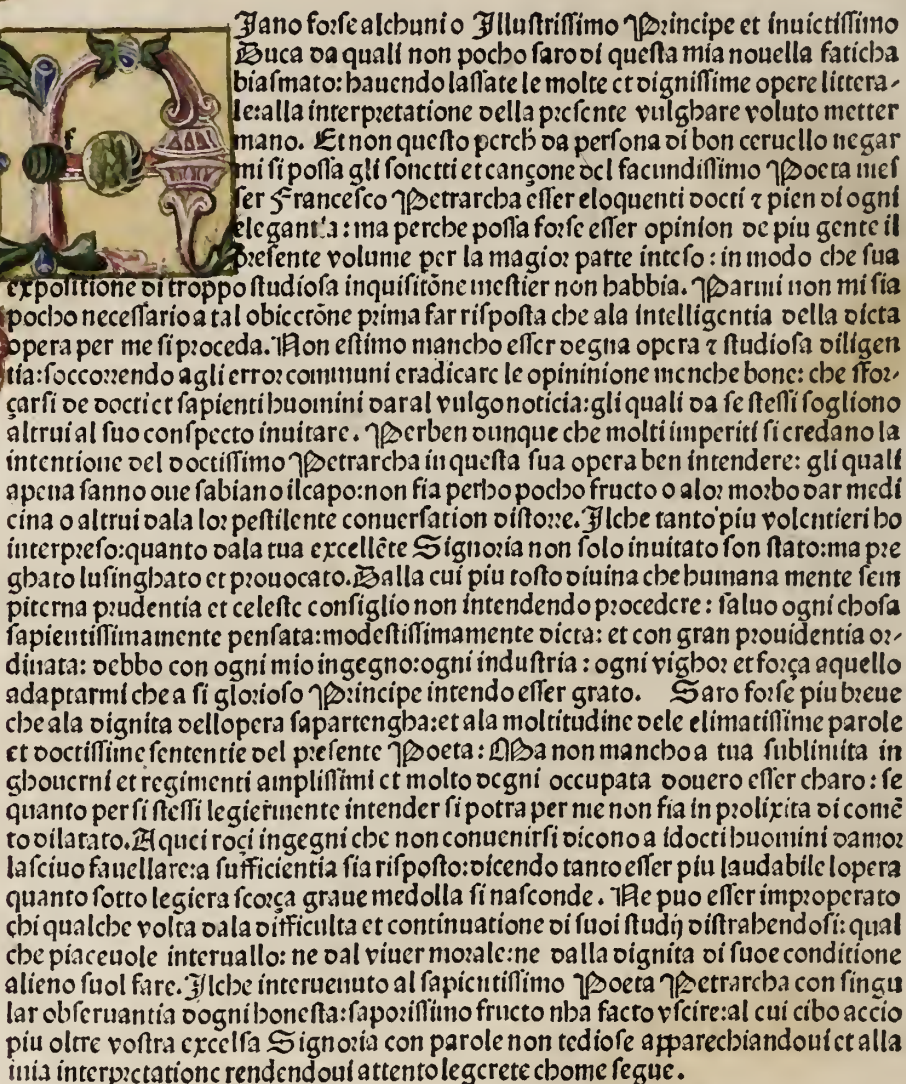 Iano forse alchuni o Illustrissimo Principe et inuictissimo
Duca da quali non pocho saro di questa mia nouella faticha
biasmato: hauendo lassate le molte et dignissime opere littera-
le: alla interpretatione della presente vulghare voluto metter
mano. Et non questo perch da persona di bon ceruello negar
mi si possa gli sonetti et cançone del facundissimo Poeta mes
ser Francesco Petrarcha esser eloquenti docti ⁊ pien di ogni
elegantia: ma perche possa forse esser opinion de piu gente il
presente volume per la magior parte inteso: in modo che sua
expositione di troppo studiosa inquisitōne mestier non habbia. Parmi non mi sia
pocho necessario a tal obiectōne prima far risposta che ala intelligentia della dicta
opera per me si proceda. Non estimo mancho esser degna opera ⁊ studiosa diligen
tia: soccorrendo agli error communi eradicare le opininione menche bone: che sfor-
çarsi de docti et sapienti huomini dar al vulgo noticia: gli quali da se stessi sogliono
altrui al suo conspecto inuitare. Perben dunque che molti imperiti si credano la
intentione del doctissimo Petrarcha in questa sua opera ben intendere: gli quali
apena sanno oue sabiano il capo: non fia perho pocho fructo o a lor morbo dar medi
cina o altrui dala lor pestilente conuersation distorre. Ilche tanto piu volentieri ho
interpreso: quanto dala tua excellēte Signoria non solo inuitato son stato: ma pre
ghato lusinghato et prouocato. Dalla cui piu tosto diuina che humana mente sem
piterna prudentia et celeste consiglio non intendendo procedere: saluo ogni chosa
sapientissimamente pensata: modestissimamente dicta: et con gran prouidentia or-
dinata: debbo con ogni mio ingegno: ogni industria: ogni vighor et força a quello
adaptarmi che a si glorioso Principe intendo esser grato. Saro forse piu breue
che ala dignita dellopera sapartengha: et ala moltitudine dele elimatissime parole
et doctissime sententie del presente Poeta: Ma non mancho a tua sublimita in
ghouerni et regimenti amplissimi et molto degni occupata douero esser charo: se
quanto per si stessi legiermente intender si potra per me non fia in prolixita di comē
to dilatato. A quei roçi ingegni che non conuenirsi dicono a idocti huomini damor
lasciuo fauellare: a sufficientia sia risposto: dicendo tanto esser piu laudabile lopera
quanto sotto legiera scorça graue medolla si nasconde. Ne puo esser improperato
chi qualche volta dala difficulta et continuatione di suoi studij distrahendosi: qual
che piaceuole interuallo: ne dal viuer morale: ne dalla dignita di suoe conditione
alieno suol fare. Ilche interuenuto al sapientissimo Poeta Petrarcha con singu
lar obseruantia dogni honesta: saporissimo fructo nha facto vscire: al cui cibo accio
piu oltre vostra excelsa Signoria con parole non tediose apparechiandoui et alla
mia interpretatione rendendoui attento legerete chome segue.